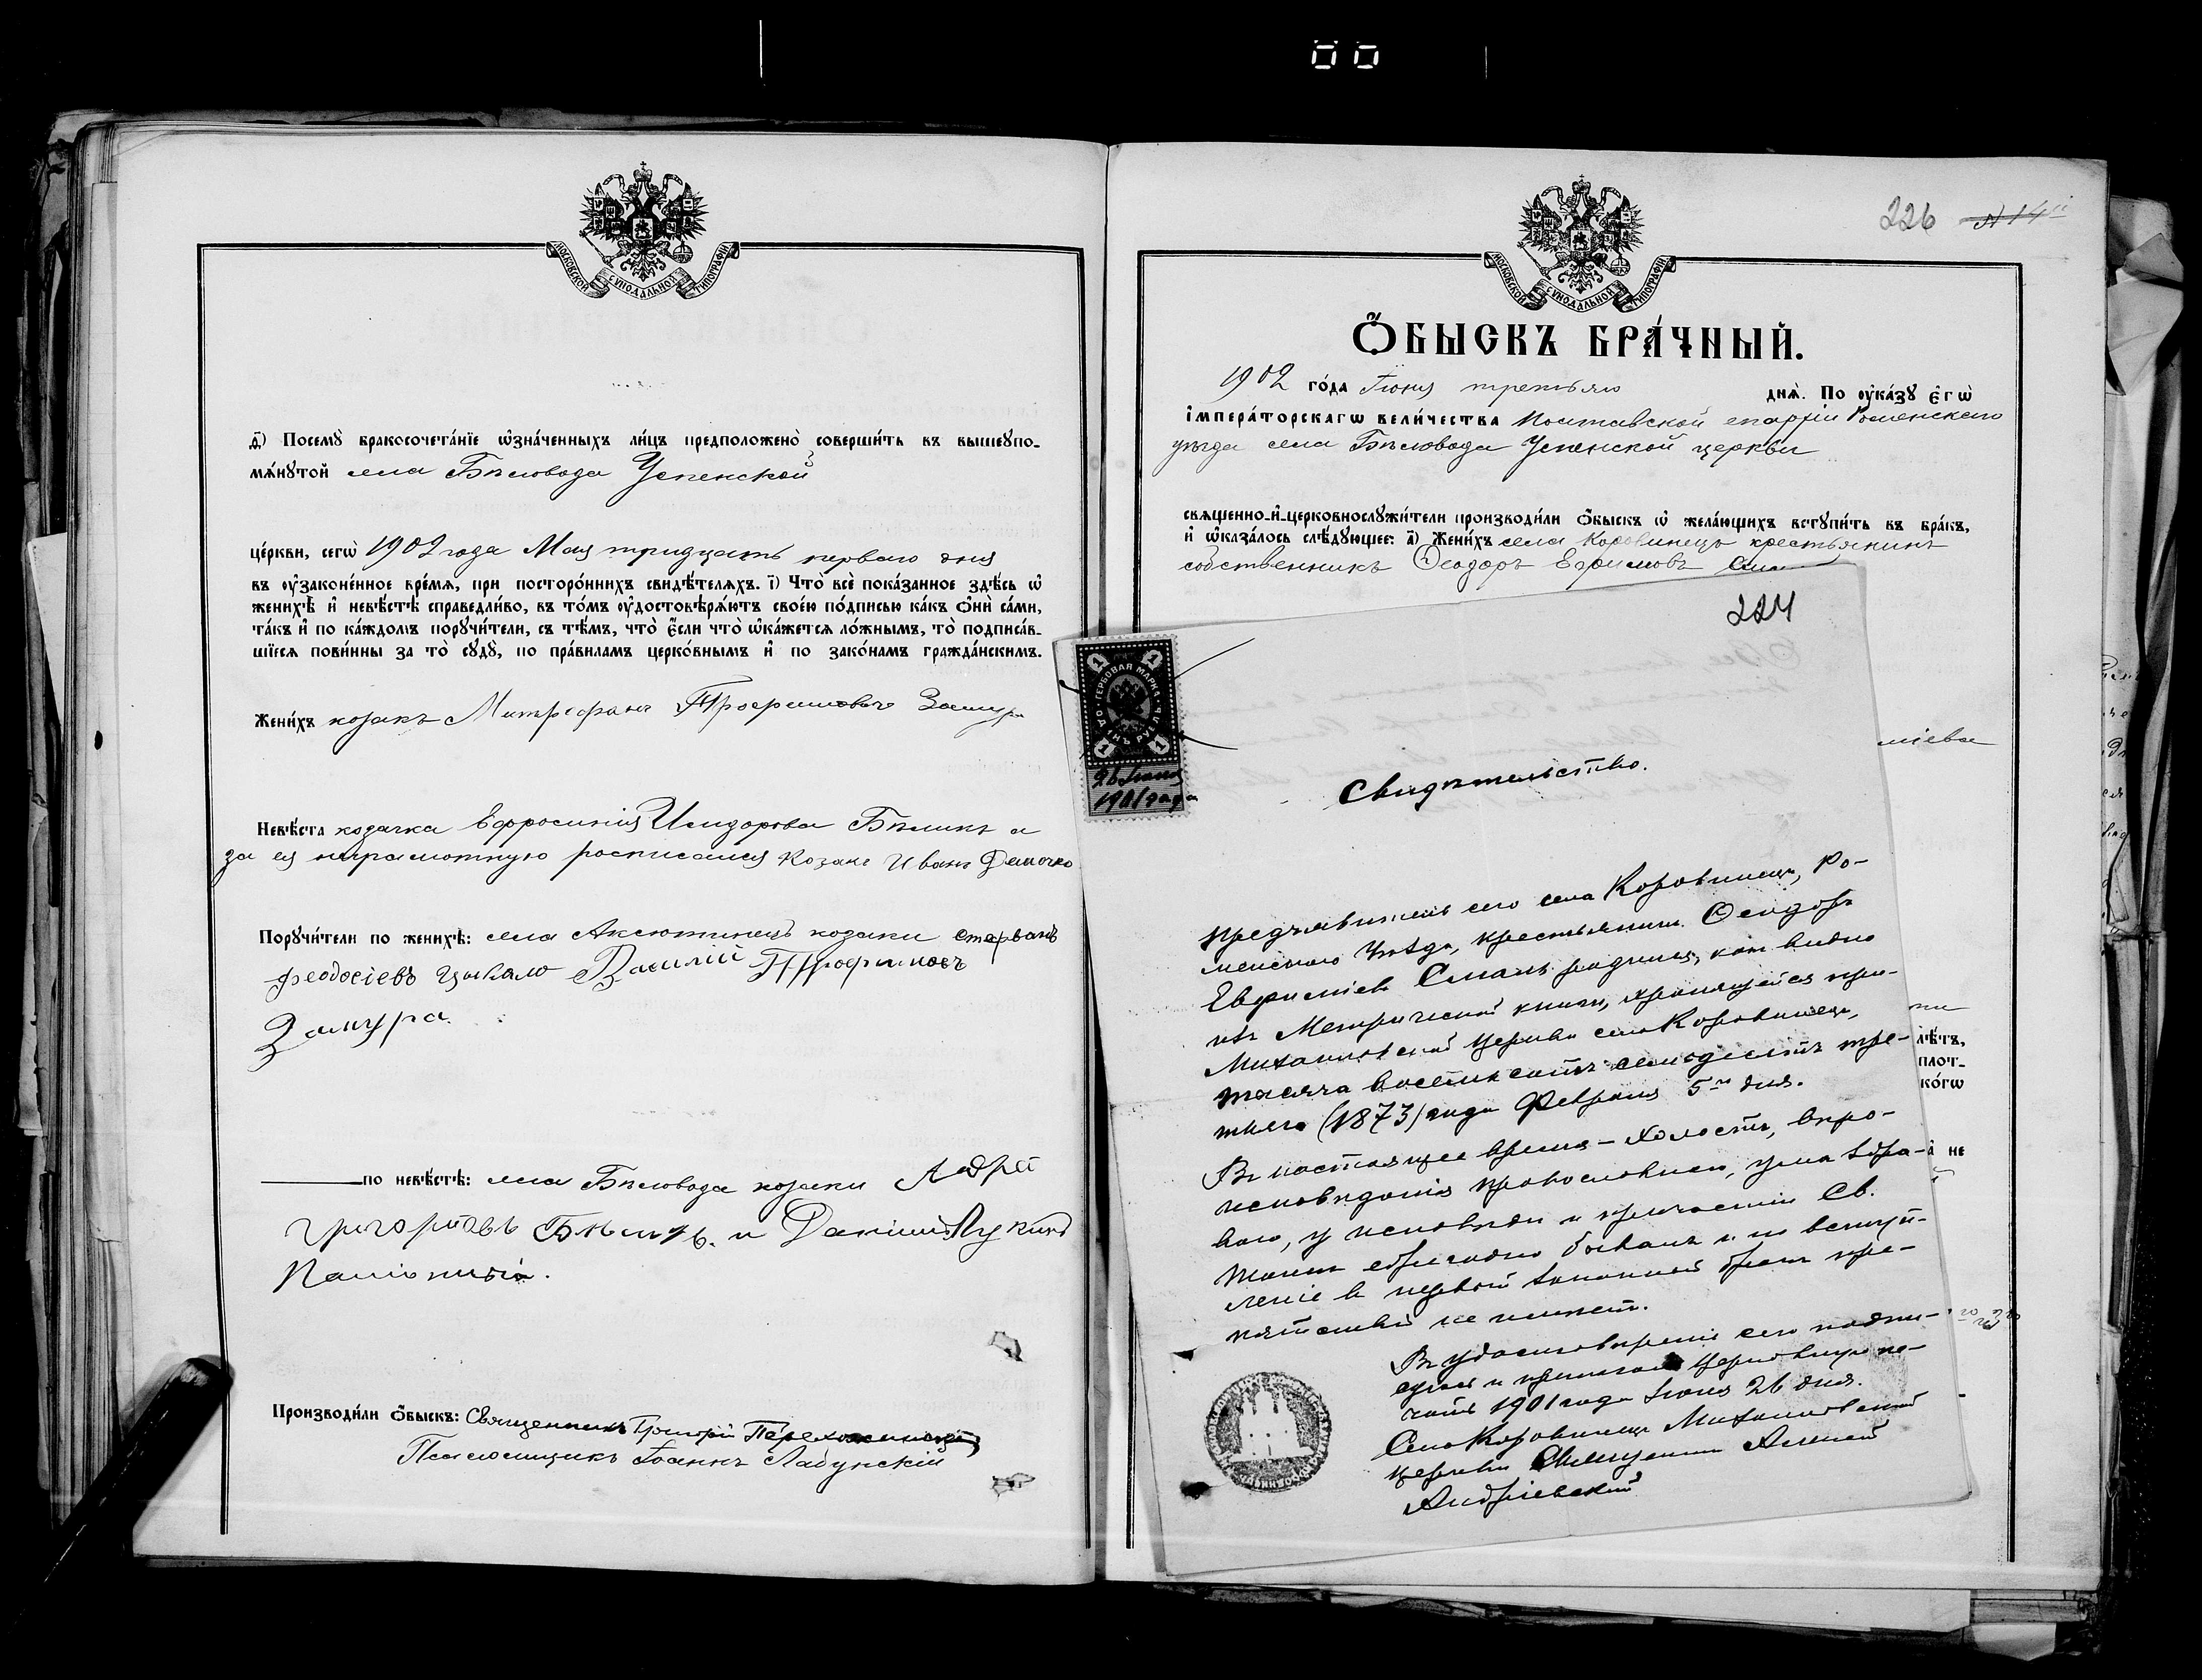 МОСКОВСКОЙ СѴНОДАЛЬНОЙ ТИПОГРАФІИ
д҃) Посемꙋ̀ бракосочета́нїе ѡ҆зна́ченныхъ ли́цъ предположено̀ соверши́ть въ вышеꙋпо-
мѧ́нꙋтой села Бѣловода Успенской
це́ркви, сегѡ̀ 1902 года Мая тридцать перваго дня
въ ᲂу҆законе́нное вре́мѧ, при посторо́ннихъ свидѣ́телѧхъ. і҃) Что̀ всѐ пока́занное здѣ́сь ѡ҆
женихѣ̀ и҆ невѣ́стѣ справедли́во, въ то́мъ ᲂу҆достовѣрѧ́ютъ свое́ю по́дписью ка́къ ѻ҆нѝ са́ми,
та́къ и҆ по ка́ждомъ порꙋчи́тели, съ тѣ́мъ, что̀ є҆́сли что̀ ѡ҆ка́жетсѧ ло́жнымъ, то̀ подписа́в-
шїесѧ пови́нны за то̀ сꙋдꙋ̀, по пра́виламъ церко́внымъ и҆ по зако́намъ гражда́нскимъ.
Жени́хъ козакъ Митрофанъ Трофимовъ Замура
Невѣ́ста козачка Ефросинія Исидорова Бѣликъ а
за ея неграмотную росписался козакъ Иванъ Демочко
Порꙋчи́тели по женихѣ̀: села Аксютинецъ козаки
Феодосіевъ Василій Трофимовъ
Замура.
по невѣ́стѣ: села Бѣловода козаки
Григоріевъ Бѣликъ. и
Производи́ли ѻ҆́быскъ: Священникъ Григорій
Псаломщикъ Іоаннъ Лабунскій
226 N 14й
МОСКОВСКОЙ СѴНОДАЛЬНОЙ ТИПОГРАФІИ
Ѻ҆́БЫСКЪ БРА́ЧНЫЙ.
1902 го́да Іюня третьяго днѧ̀. По ᲂу҆ка́зꙋ є҆гѡ̀
і҆мпера́торскагѡ вели́чества Полтавской епархіи Роменскаго
уѣзда села Бѣловода Успенской церкви
свѧщенно-и҆-церковнослꙋжи́тели производи́ли ѻ҆́быскъ ѡ҆ жела́ющихъ встꙋпи́ть въ бра́къ,
и҆ ѡ҆каза́лось слѣ́дꙋющее: а҃) Жени́хъ села Коровинецъ крестьянинъ
собственникъ Ѳеодоръ Ефимовъ
224
ГЕРБОВАЯ МАРКА
ОДИНЪ РУБЛЬ
1
26 Іюня
1901 года
міева
Свидѣтельство.
Предъявитель сего села Коровинецъ, Ро-
менскаго Уѣзда, крестьянинъ Ѳеодоръ
Евфиміевъ родился, какъ видно
изъ Метрической книги, хранящейся при
Михаиловской церкви села Коровинецъ,
тысяча восемьсотъ семьдесятъ тре-
тьяго (1873) года Февраля 5го дня.
Въ настоящее время – холостъ, вѣро-
исповѣданія православнаго, ума здра-
ваго, у исповѣди и причастія Св.
Таинъ ежегодно бывалъ и на вступ-
леніе въ первый законный бракъ пре-
пятствій не имѣетъ.
Въ удостовѣреніе сего подпи-
суюсь и прилагаю церковную пе-
чать 1901 года Іюня 26 дня.
Села Коровинецъ Михаиловской
церкви Священникъ Алексей
Андріевскій
лѣ́тъ,
плот-
ко́гѡ
не